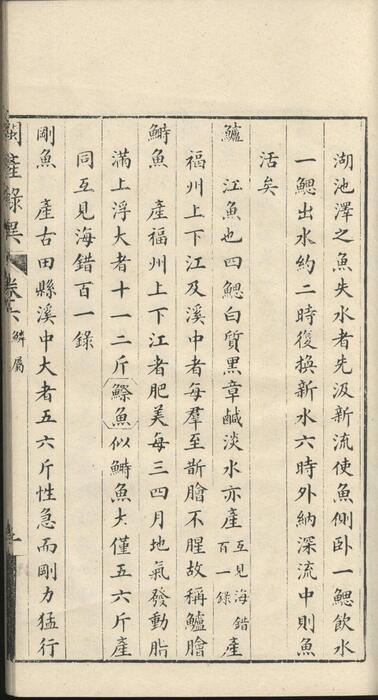 湖池澤之魚失水者先汲新流使魚側卧一鰓飲水
一鰓出水約二時復換新水六時外納深流中則魚
活矣
鱸 江魚也四鰓白質黑章鹹淡水亦產互見海錯百一錄產
福州上下江及溪中者每羣至斮膾不腥故稱鱸膾
鰣魚 產福州上下江者肥美每三四月地氣發動脂
滿上浮大者十一二斤鰶魚似鰣魚大僅五六斤產
同互見海錯百一錄
剛魚 產古田縣溪中大者五六斤性急而剛力猛行
閩產錄異 卷 鱗屬